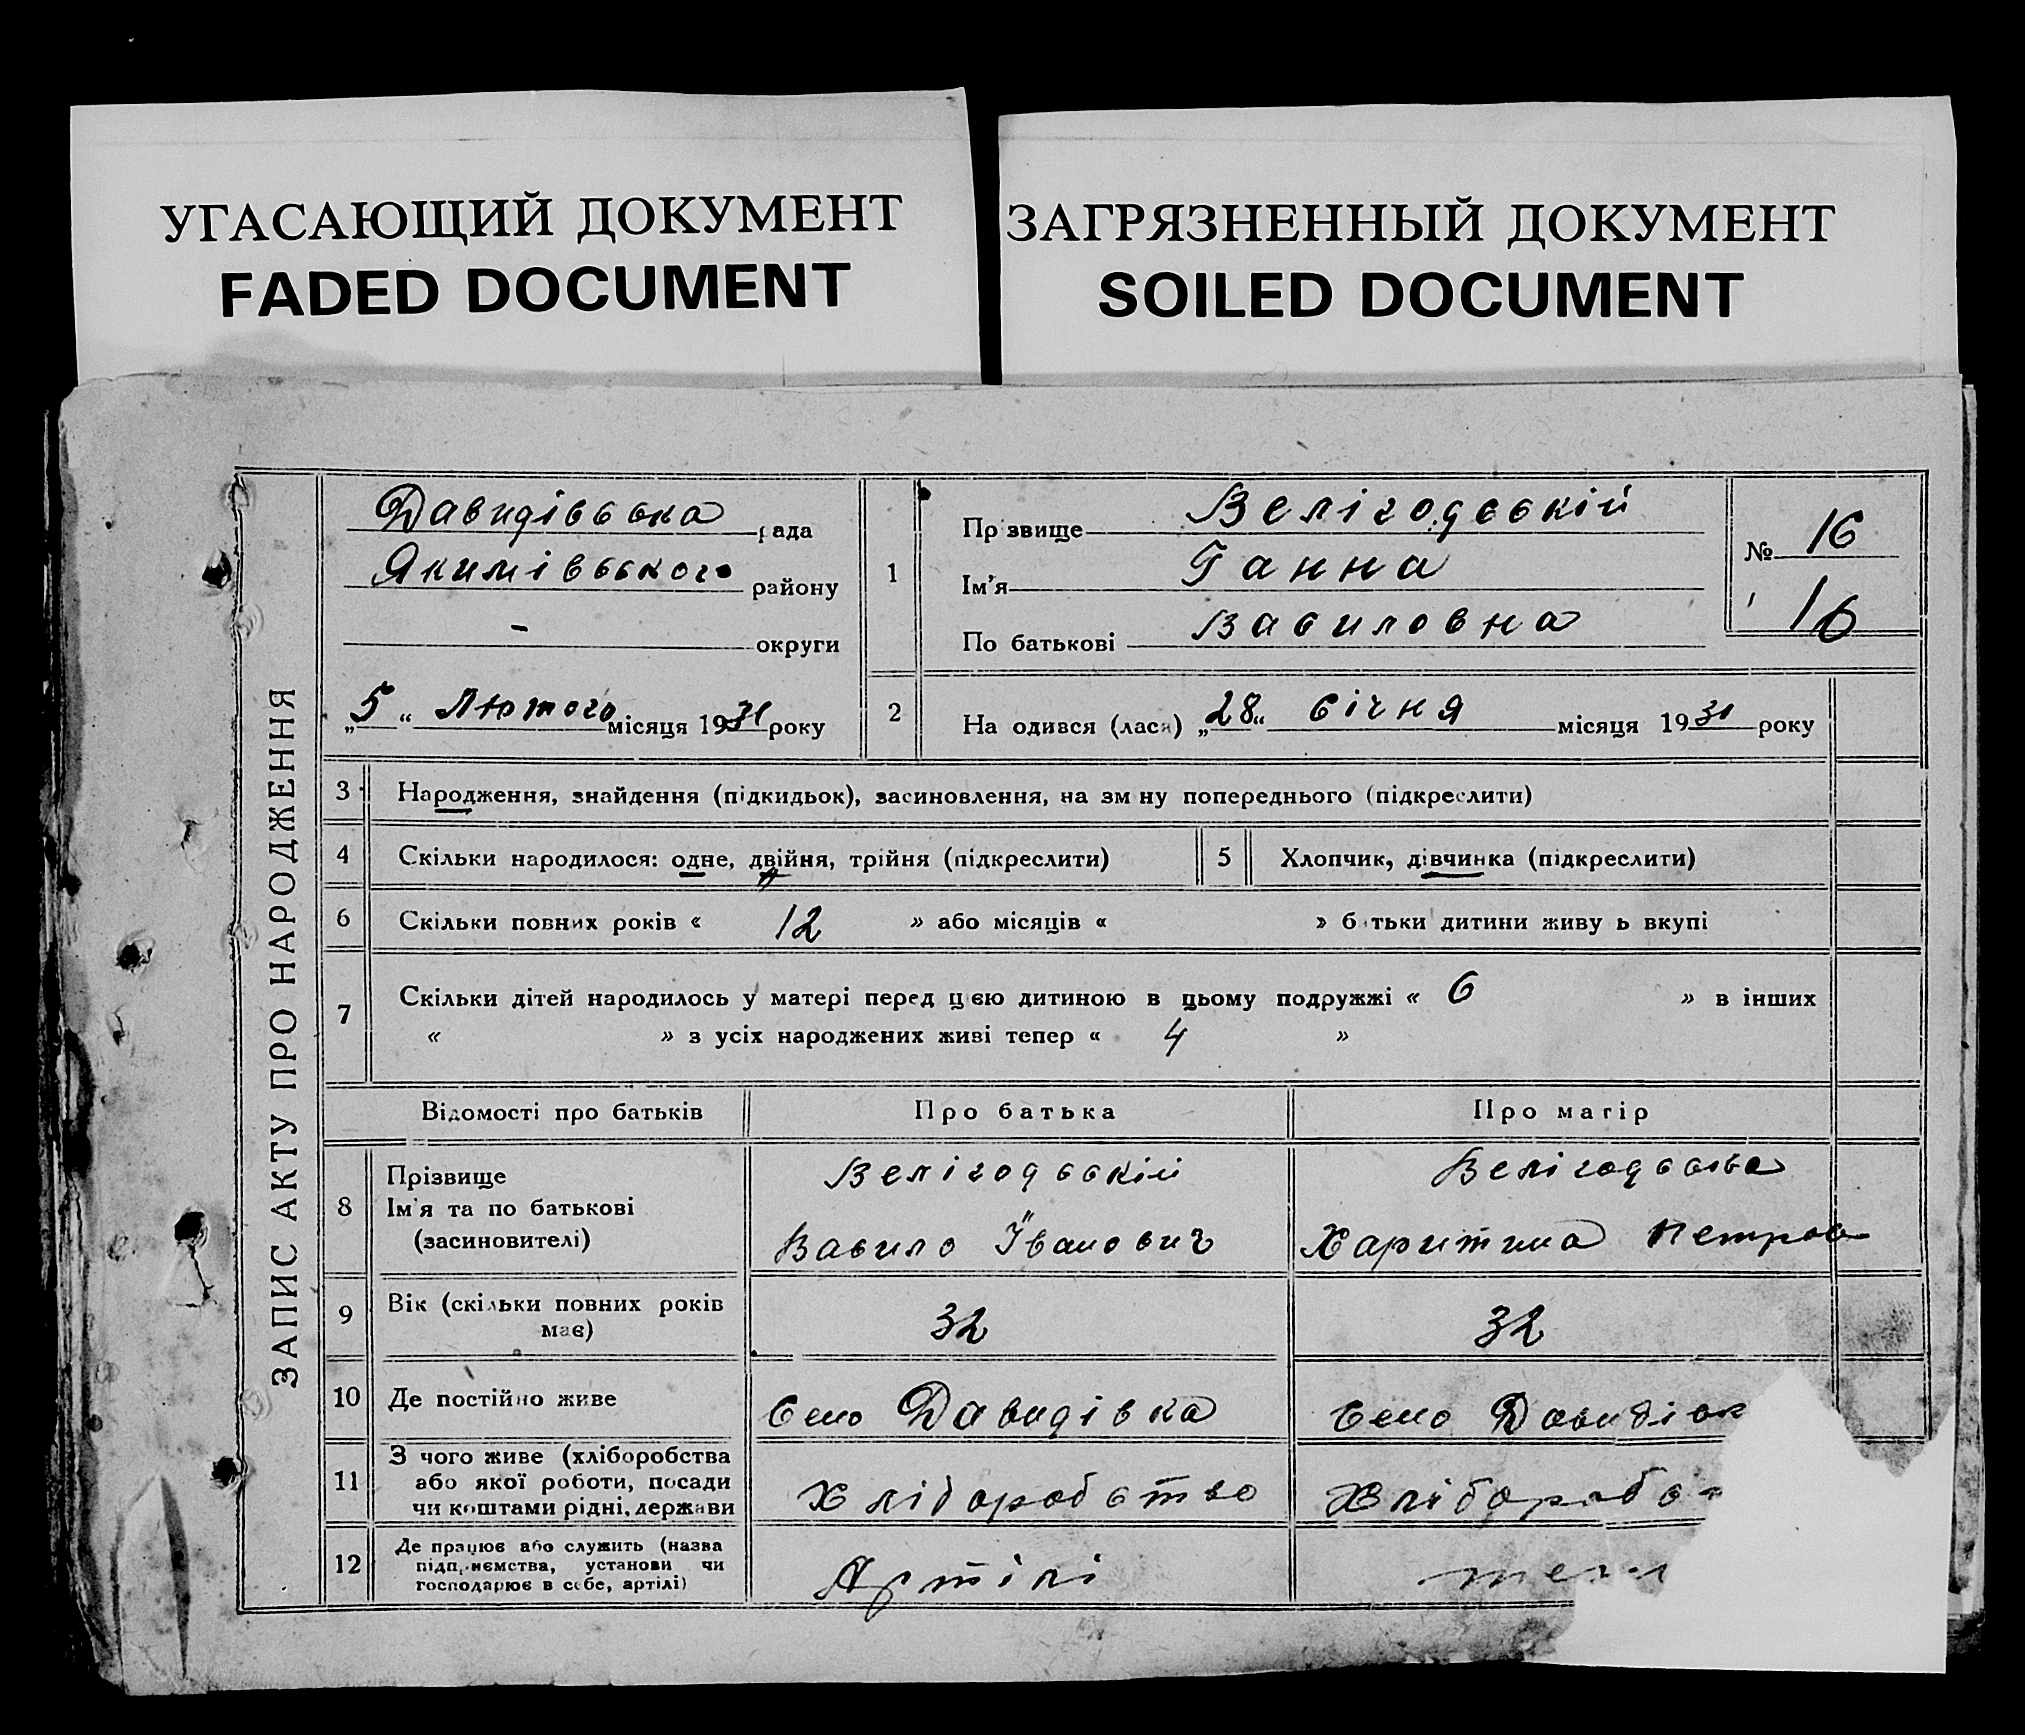 УГАСАЮЩИЙ ДОКУМЕНТ
FADED DOCUMENT
ЗАГРЯЗНЕННЫЙ ДОКУМЕНТ
SOILED DOCUMENT
ЗАПИС АКТУ ПРО НАРОДЖЕННЯ
Давидівська рада
Якимівського району
- округи
„5" Лютого місяця 1931 року
1
Прізвище Велігодський
Ім'я Ганна
По батькові Вавиловна
№ 16
16
2
На одився (лася) „28" січня місяця 1931 року
3 Народження, знайдення (підкидьок), засиновлення, на зм ну попереднього (підкреслити)
4 Скільки народилося: одне, двійня, трійня (підкреслити)
5 Хлопчик, дівчинка (підкреслити)
6 Скільки повних років « 12 » або місяців « » б тьки дитини живу ь вкупі
7 Скільки дітей народилось у матері перед цією дитиною в цьому подружжі « 6 » в інших
« » з усіх народжених живі тепер « 4 »
Відомості про батьків Про батька Про матір
8 Прізвище
Ім'я та по батькові
(засиновителі)
Велігодській
Вавило Іванович
Велігодська
Харитина Петров
9 Вік (скільки повних років
має)
32
32
10 Де постійно живе
Село Давидівка
Село Давидівк
11 З чого живе (хліборобства
або якої роботи, посади
чи коштами рідні, держави
Хліборобство
Хлібороб
12 Де працює або служить (назва
підприємства, установи чи
господарює в себе, артілі)
Артілі